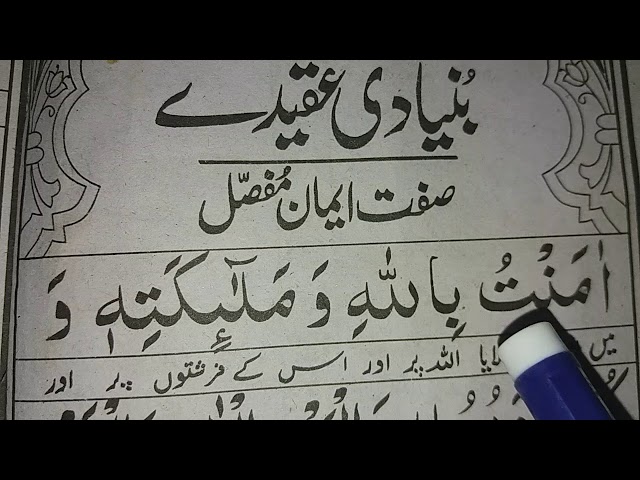 بُنیادی عقیدے
صفت ایمان مُفصّل
اٰمَنْتُ بِاللّٰهِ وَ مَلٰٓئِكَتِهٖ وَ
میں لایا اللہ پر اور اس کے فرشتوں پر اور